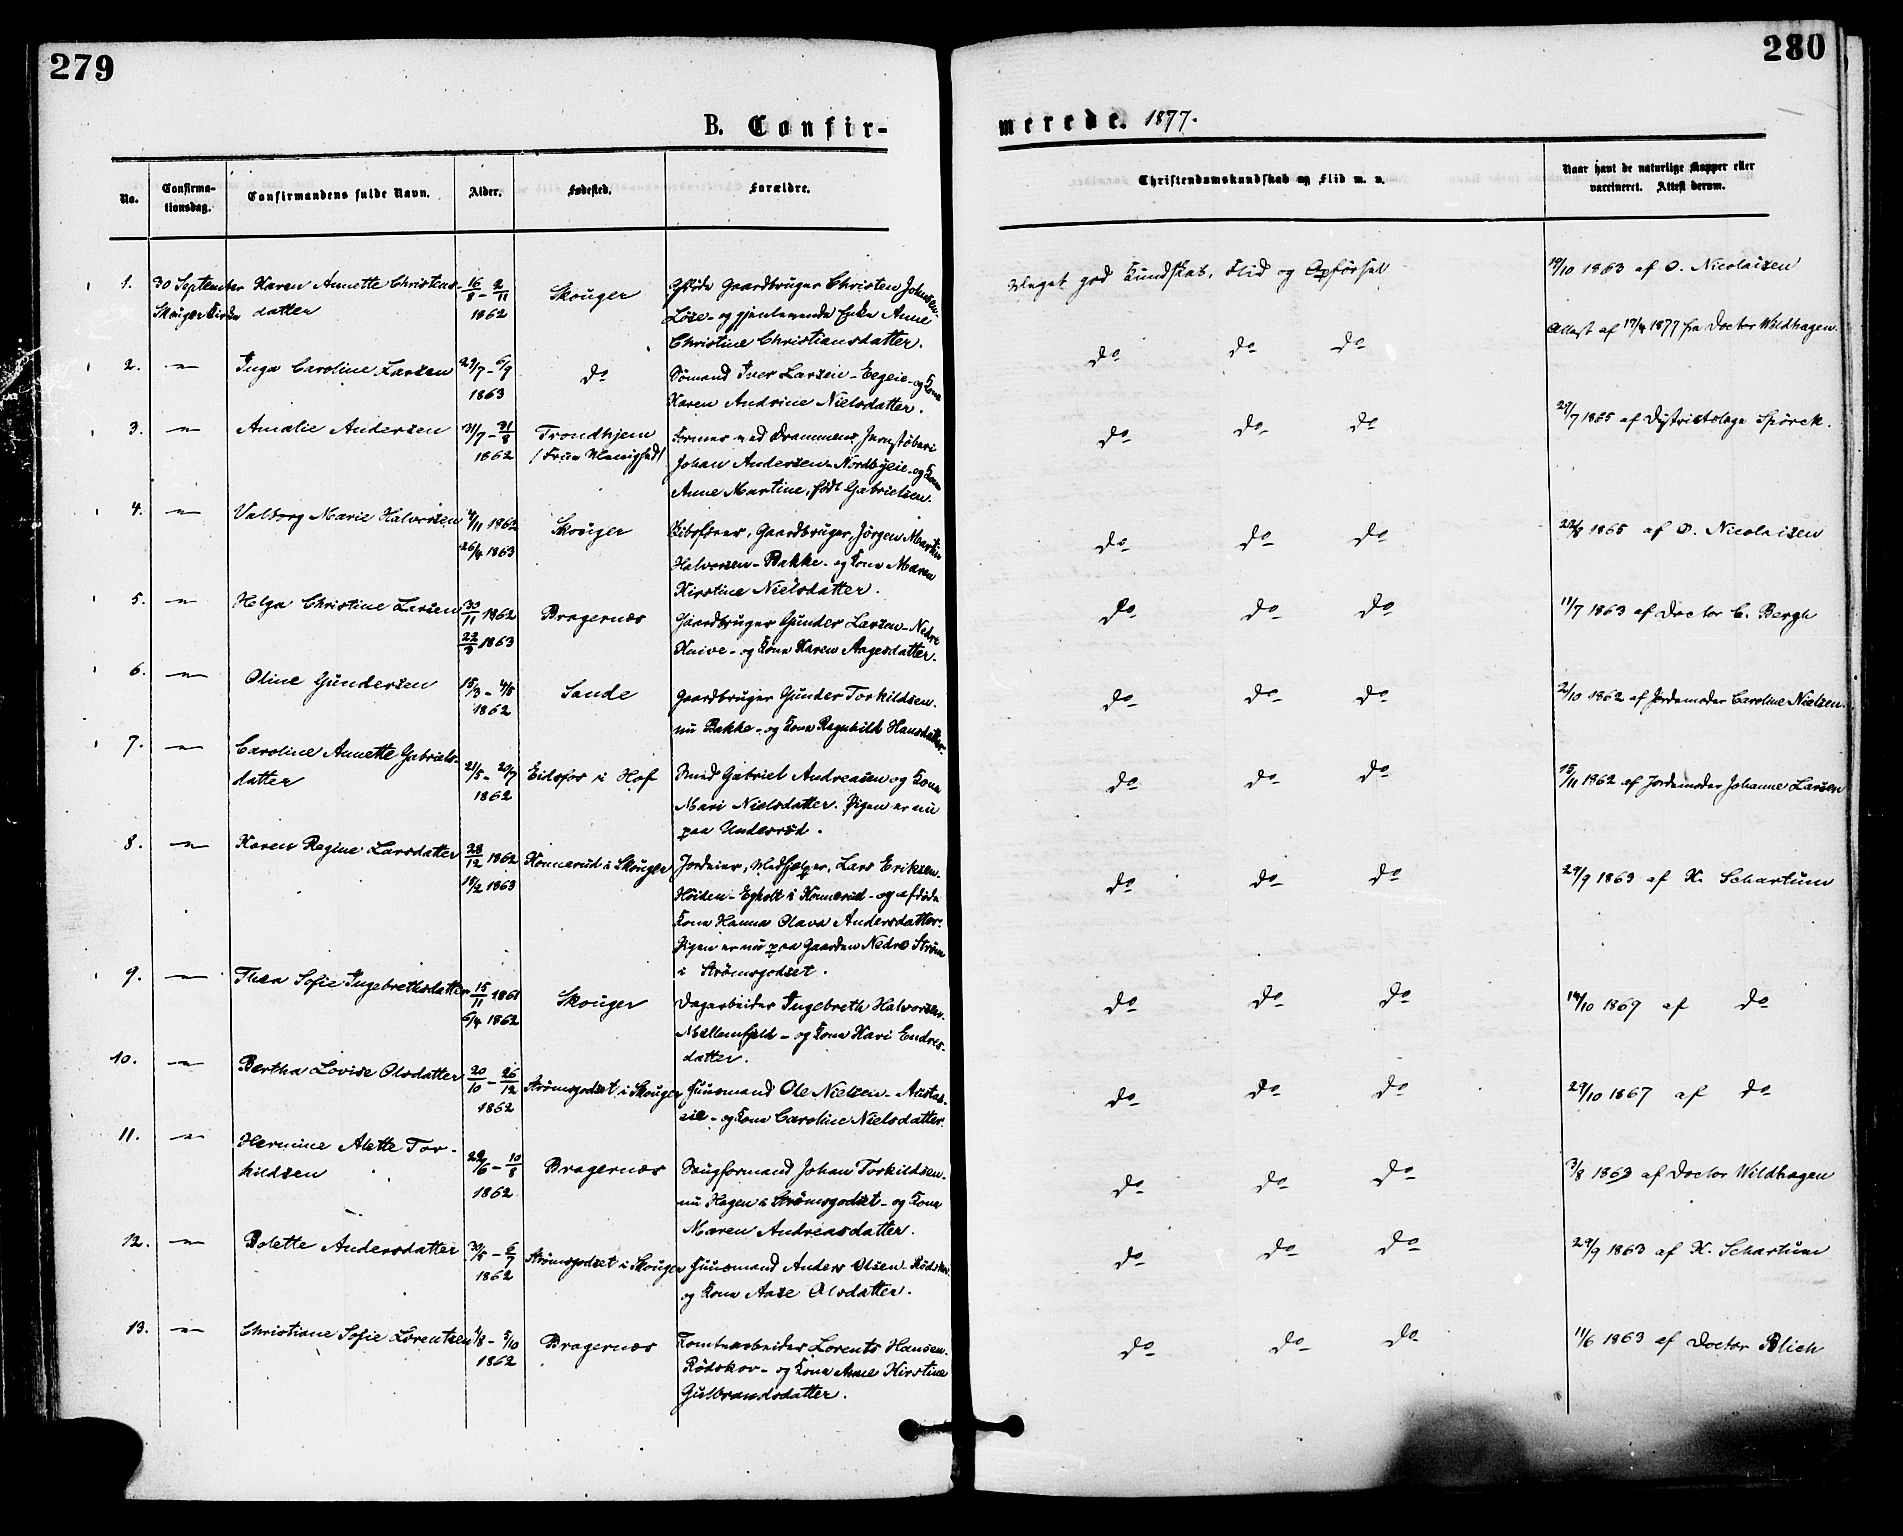 279
280
B. Confir-
merede. 1877.
No.
Confirma-
tionsdag.
Confirmandens fulde Navn.
Alder.
Fødested.
Forældre.
Christendomskundskab og Flid m. v.
Naar havt de naturlige Kopper eller
vaccineret. Attest derom.
1. 30 September Karen Annette Christens- 16/8 - 2/11 Skouger
Skouger Kirke datter 1862
Gaardbruger Christen Johnsen
Løse - og gjenlevende Enke Anne
Christine Christiansdatter.
Meget god Kundskab, Flid og Opførsel
19/10 1863 af O. Nicolaisen
Attest af 17/4 1877 fra Doctor Wildhagen.
2. -"- Inga Caroline Larsen 29/7 - 6/9 do
1863
Sømand Iver Larsen - Eegeie - og Kone
Karen Andrine Nielsdatter.
do do do
3. -"- Amalie Andersen 31/7 - 31/8 Trondhjem
1862
Former ved Drammens Jernstøberi
Johan Andersen - Nordbyeie - og Kone
Anne Martine, født Gabrielsen.
do do do
29/7 1865 af Districtslæge Spörck.
4. -"- Valborg Marie Halvorsen 4/11 1862 Skouger
26/4 1863
Gaardbruger, Jörgen Martin
Halvorsen - Bakke - og Kone Maren
Kirstine Nielsdatter.
do do do
22/8 1865 af O. Nicolaisen
5. -"- Helga Christine Larsen 30/11 1862 Bragernæs
22/3 1863
Gaardbruger Gunder Larsen - Nedre
Kaive - og Kone Karen Aagesdatter.
do do do
11/7 1863 af Doctor C. Bergh
6. -"- Oline Gundersen 15/3 - 4/5 Sande
1862
Gaardbruger Gunder Torkildsen.
nu Bakke - og Kone Ragnhild Hansdatter.
do do do
2/10 1862 af Jordemoder Caroline Nielsen.
7. -"- Caroline Annette Gabriels- 21/5 - 20/7 Eidsfos i Hof
datter 1862
Smed Gabriel Andreasen og Kone
Mari Nielsdatter. Pigen er nu
paa Underrud.
do do do
15/11 1862 af Jordemoder Johanne Larsen
8. -"- Karen Regine Larsdatter 28/12 1862 Konnerud i Skouger
15/2 1863
Jordeier, Medhjælper, Lars Eriksen.
Høiden - Egholt i Konnerud - og afdøde
Kone Hanna Olava Andersdatter.
Pigen er nu paa Gaarden Nedre Strøm
i Strømsgodset.
do do do
29/9 1863 af K. Schartum
9. -"- Thea Sofie Ingebrethsdatter 15/11 1861 Skouger
6/4 1862
Dagarbeider Ingebreth Halvorsen.
Møllenfjeld - og Kone Kari Endres-
datter.
do do do
14/10 1869 af do
10. -"- Bertha Lovise Olsdatter 20/10 - 26/12 Strømsgodset i Skouger
1862
Huusmand Ole Nielsen - Austad-
eie - og Kone Caroline Nielsdatter.
do do do
29/10 1867 af do
11. -"- Hermine Alette Tor- 29/6 - 10/8 Bragernæs
kildsen 1862
Saugformand Johan Torkildsen.
nu Hagen i Strømsgodset - og Kone
Maren Andreasdatter.
do do do
3/8 1863 af Doctor Wildhagen
12. -"- Bolette Andersdatter 30/5 - 6/7 Strømsgodset i Skouger
1862
Huusmand Anders Olsen Rødskov.
og Kone Aase Olsdatter.
do do do
29/9 1863 af K. Schartum
13. -"- Christiane Sofie Lorentzen 1/8 - 5/10 Bragernæs
1862
Tomtearbeider Lorents Hansen.
Rødskov - og Kone Anne Kirstine
Gulbrandsdatter.
do do do
11/6 1863 af Doctor Blich